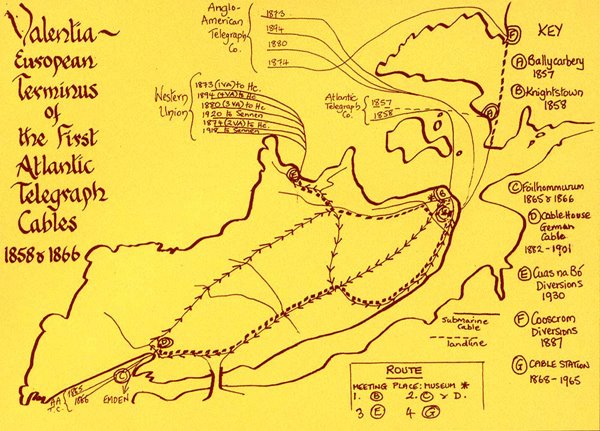 Valentia ~
European
Terminus
of
the First
Atlantic
Telegraph
Cables
1858 & 1866
Anglo-
American
Telegraph
Co.
1873
1894
1880
1874
Western
Union
1873 (1VA) to Hc.
1894 (4VA) to Hc
1880 (3VA) to Hc
1920 to Sennen
1874 (2VA) to Hc.
to Sennen
Atlantic
Telegraph
Co.
1857
1858
F
A
E
B
G
D
C
1865
1866
A.A.
T.C.
EMDEN
KEY
A Ballycarbery
1857
B Knightstown
1858
C Foilhommurum
1865 & 1866
D Cable House
German
Cable
1882-1901
E Cuas na Bó
Diversions
1930
F Cooscrom
Diversions
1887
G CABLE STATION
1868-1965
Submarine
Cable
landline
ROUTE
MEETING PLACE: MUSEUM *
1. B 2. C & D.
3 E 4 G